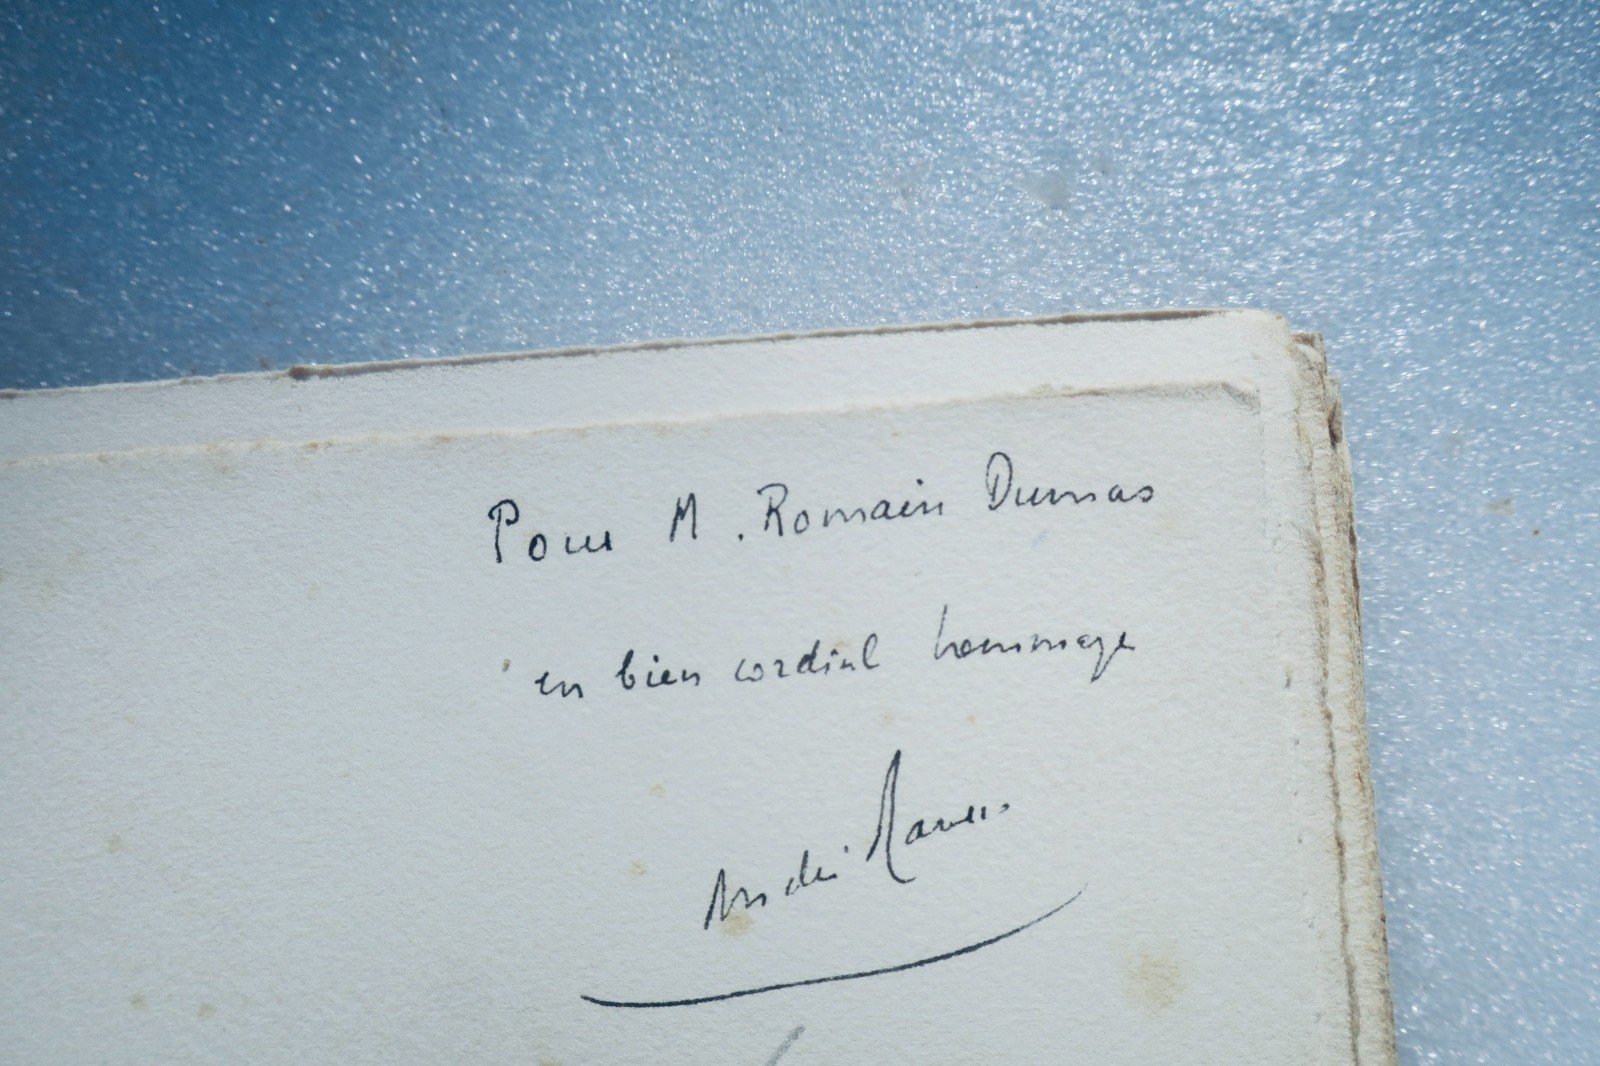 Pour M. Romain Dumas
en bien cordial hommage
André